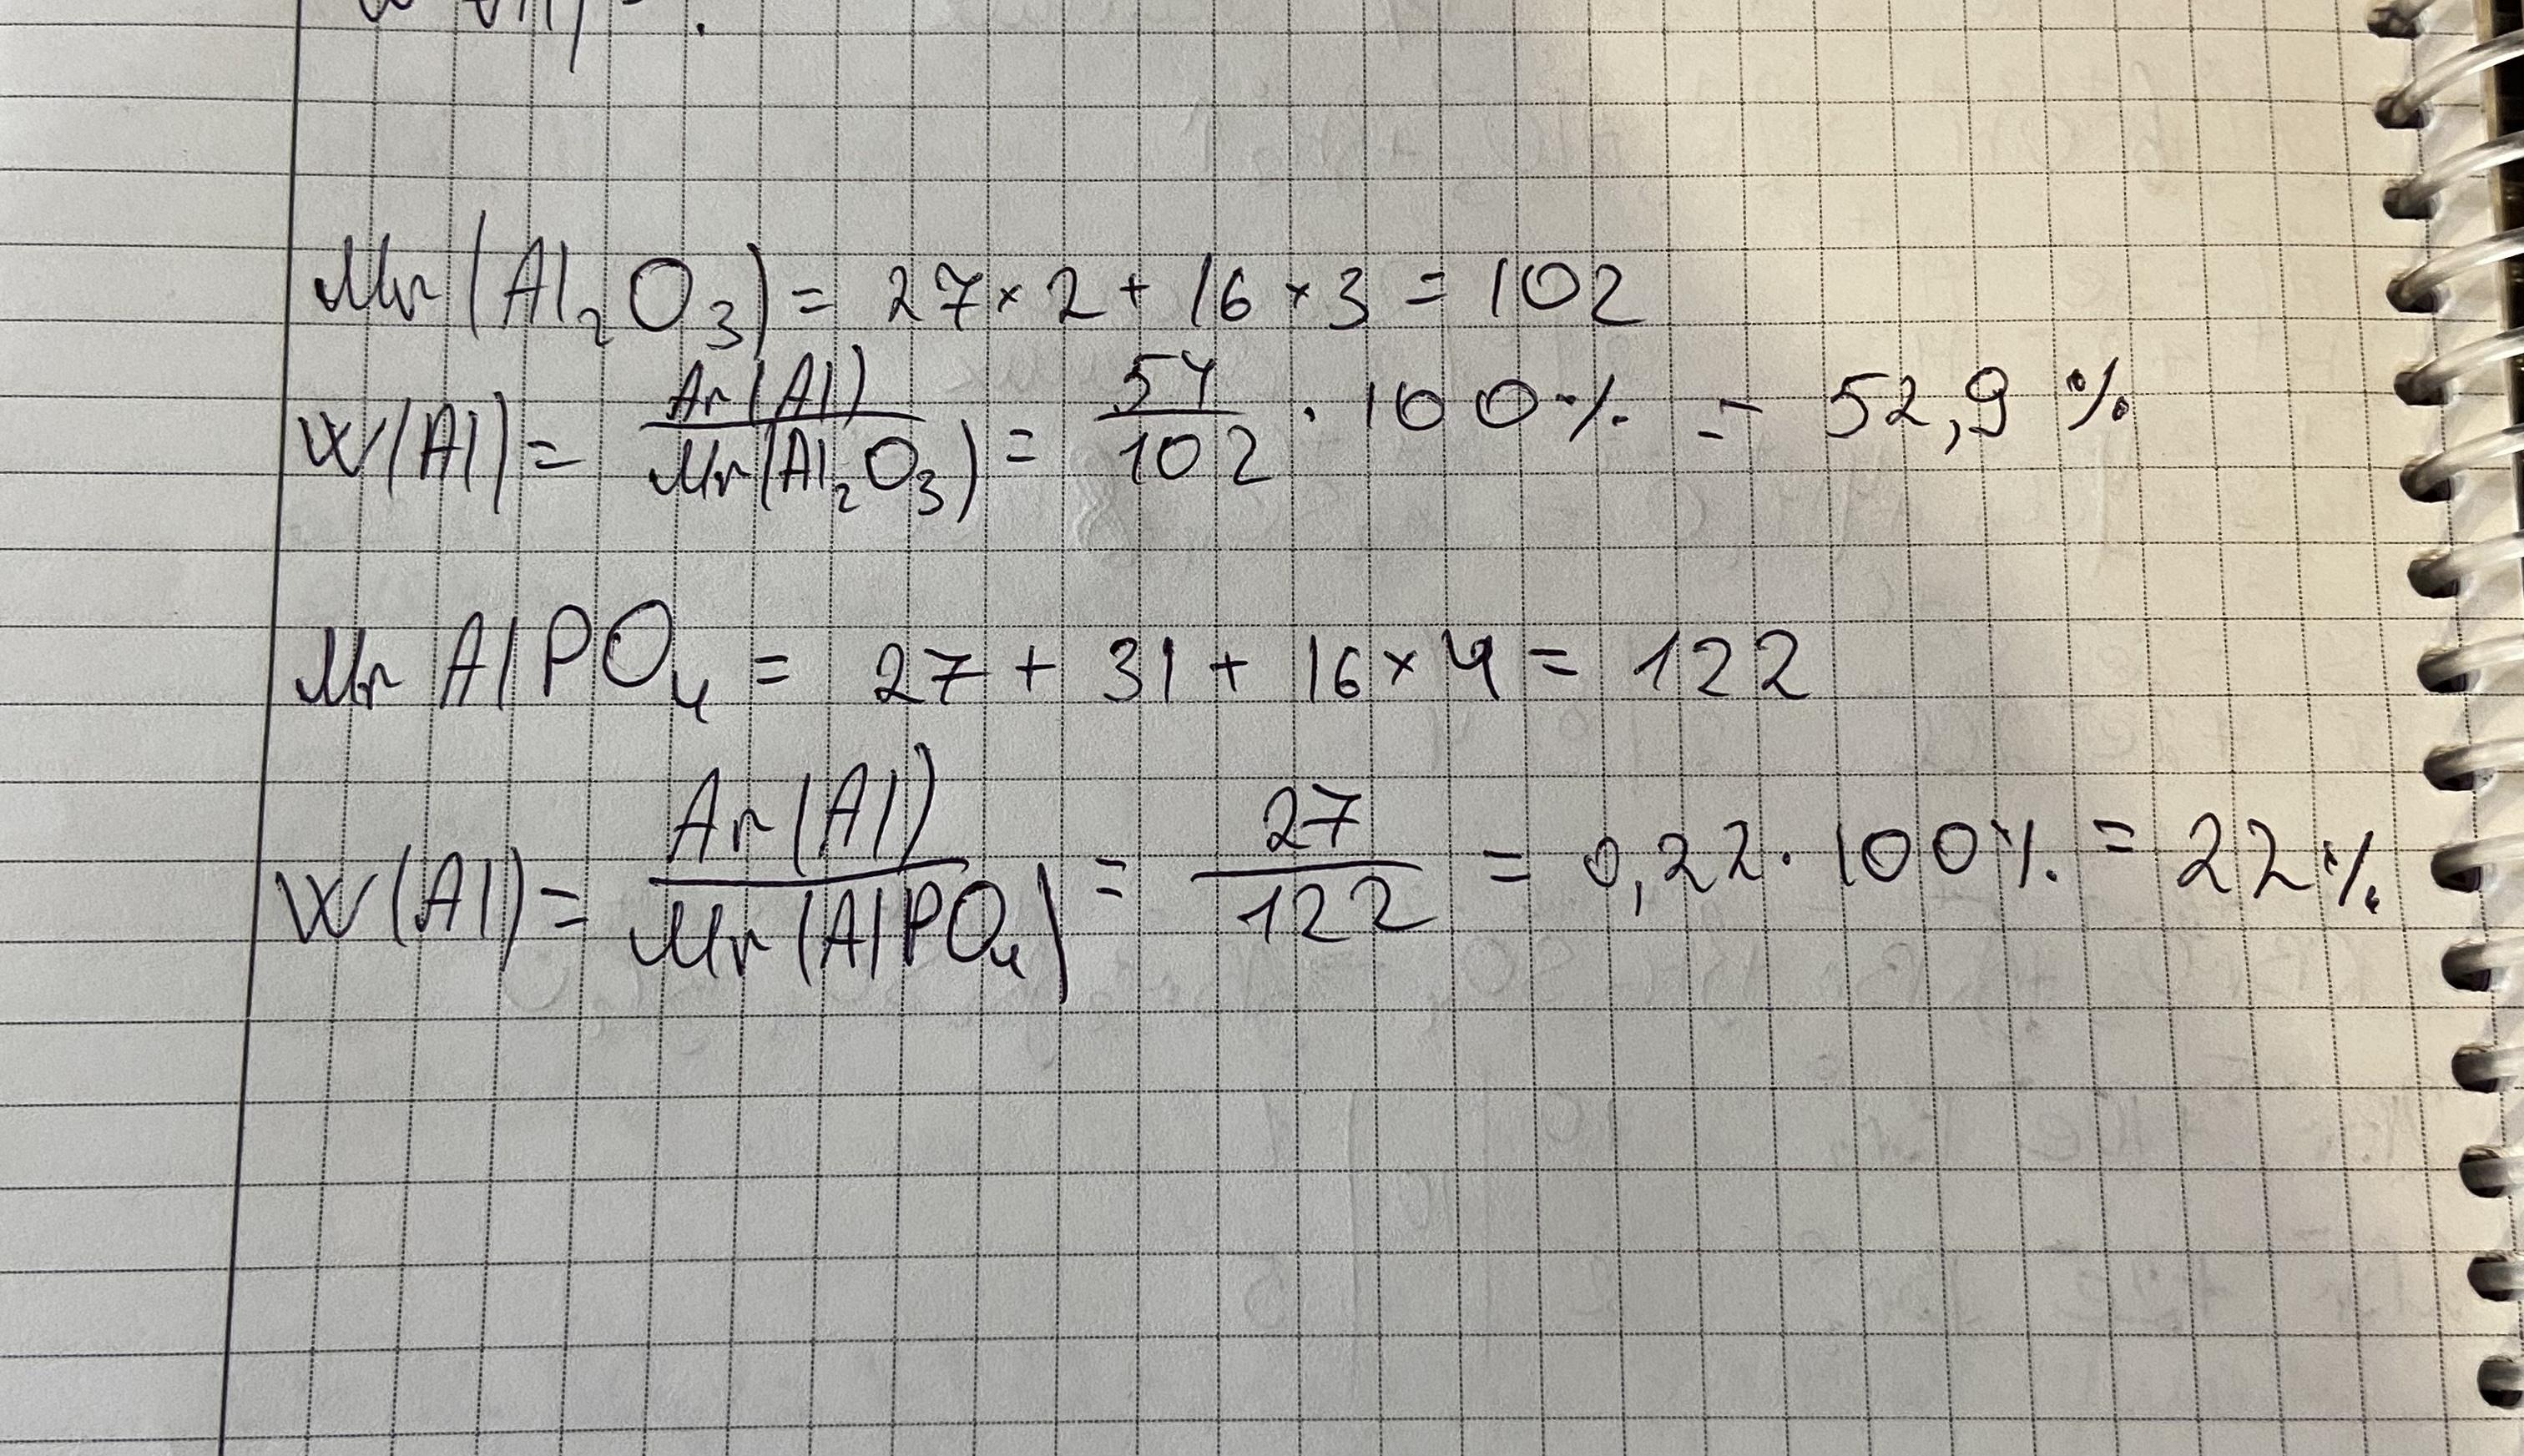 Mr(Al₂O₃) = 27 × 2 + 16 × 3 = 102
W(Al) = Ar(Al) / Mr(Al₂O₃) = 54 / 102 · 100% = 52,9 %
Mr AlPO₄ = 27 + 31 + 16 × 4 = 122
W(Al) = Ar(Al) / Mr(AlPO₄) = 27 / 122 = 0,22 · 100% = 22%